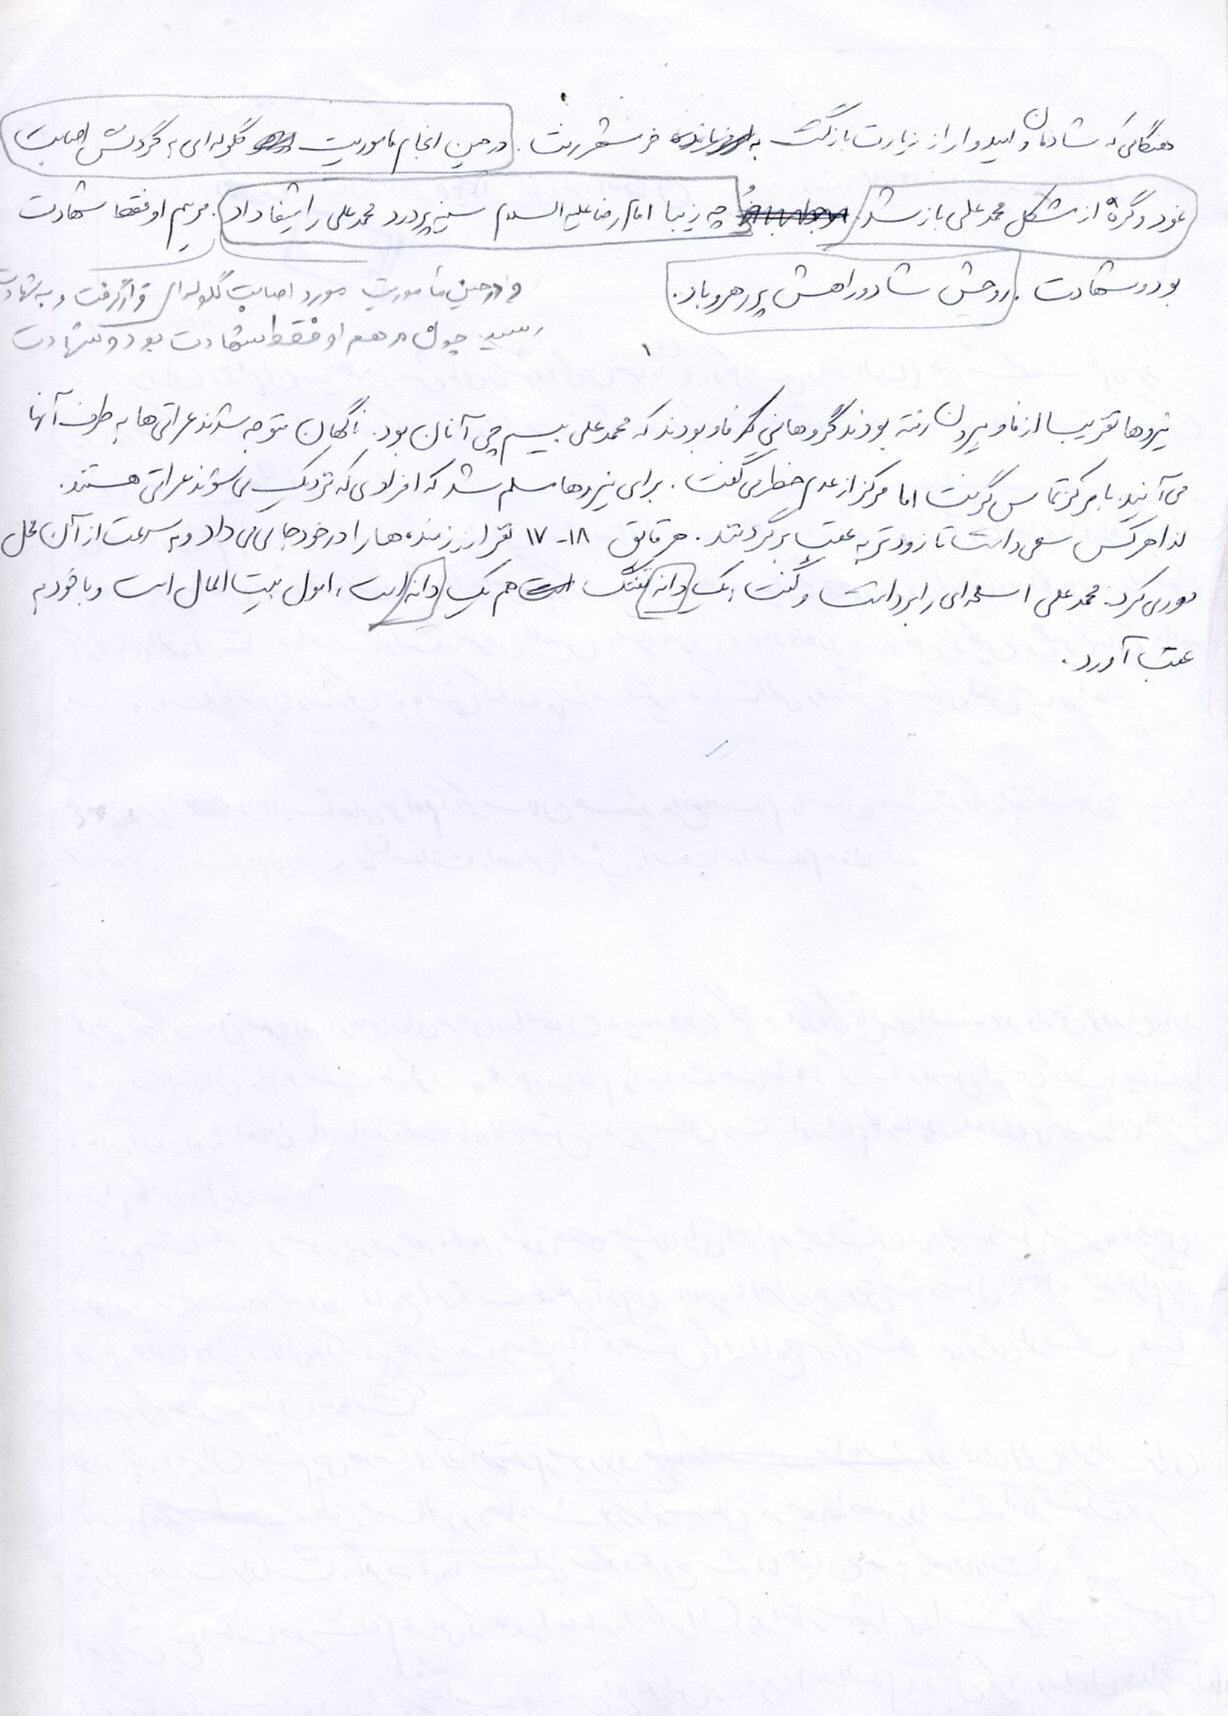 هنگامی که شادمان و امیدوار از زیارت بازگشت به خرمشهر رفت. در حین انجام ماموریت گلوله‌ای به گردنش اصابت
نمود و گرهٔ از مشکل محمدعلی باز شد. چه زیبا امام رضا علیه السلام سینه پر درد محمدعلی را شفا داد. مرهم او فقط شهادت
بود و شهادت. روحش شاد و راهش پر رهرو باد.
و در حین مأموریت مورد اصابت گلوله‌ای قرار گرفت و به شهادت
رسید. چون مرهم او فقط شهادت بود و شهادت
نیروها تقریبا از فاو بیرون رفته بودند گروهانی در فاو بودند که محمدعلی بیسیم چی آنان بود. ناگهان متوجه شدند عراقی‌ها به طرف آنها
می‌آیند. با مرکز تماس گرفت اما مرکز از عدم خطر می‌گفت. برای نیروها مسلم شد که افرادی که نزدیک می‌شوند عراقی هستند.
لذا هر کس سعی داشت تا زودتر به عقب برگردند. هر قایق ۱۸-۱۷ نفر از رزمنده‌ها را در خود جای می‌داد و به سرعت از آن محل
دوری می‌کرد. محمدعلی اسلحه‌ای را برداشت و گفت: یک دانه تفنگ هم یک دانه است، اموال بیت المال است و با خود به
عقب آورد.